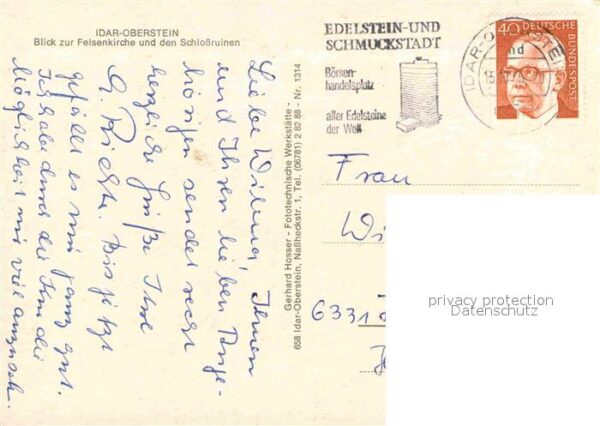 IDAR-OBERSTEIN
Blick zur Felsenkirche und den Schloßruinen
Liebe Wilma, Ihnen
und Ihren lieben Ange-
hörigen sendet recht
herzliche Grüße Ihre
R. Richte. Bis jetzt
gefällt es mir ganz gut.
Ich habe durch die Kur die
Möglichkeit mir viel anzuseh.
Gerhard Hosser - Fototechnische Werkstätte - Nr. 1314
658 Idar-Oberstein, Naßheckstr. 1, Tel. (06781) 2 82 88
EDELSTEIN-UND
SCHMUCKSTADT
Börsen-
handelsplatz
aller Edelsteine
der Welt
IDAR-OBERSTEIN
nd
40 DEUTSCHE
BUNDESPOST
Frau
Wi
6331
privacy protection
Datenschutz